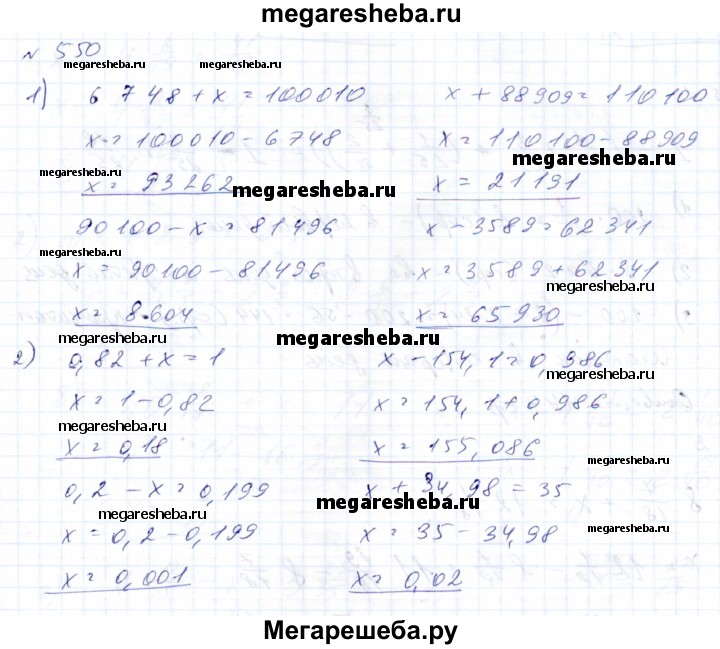 megaresheba.ru
№ 550
megaresheba.ru megaresheba.ru
1) 6 748 + x = 100010 x + 88909 = 110 100
x = 100010 - 6748 x = 110100 - 88909
megaresheba.ru
megaresheba.ru
x = 93262 x = 21191
megaresheba.ru
90100 - x = 81496 x - 3589 = 62341
megaresheba.ru
x = 90100 - 81496 x = 3589 + 62341
megaresheba.ru
x = 8604 x = 65930
megaresheba.ru megaresheba.ru
2) 0,82 + x = 1 x - 154,1 = 0,986
megaresheba.ru
x = 1 - 0,82 x = 154,1 + 0,986
x = 0,18 x = 155,086
megaresheba.ru
0,2 - x = 0,199 x + 34,98 = 35
megaresheba.ru megaresheba.ru
x = 0,2 - 0,199 x = 35 - 34,98
megaresheba.ru
x = 0,001 x = 0,02
megaresheba.ru
Мегарешеба.ру